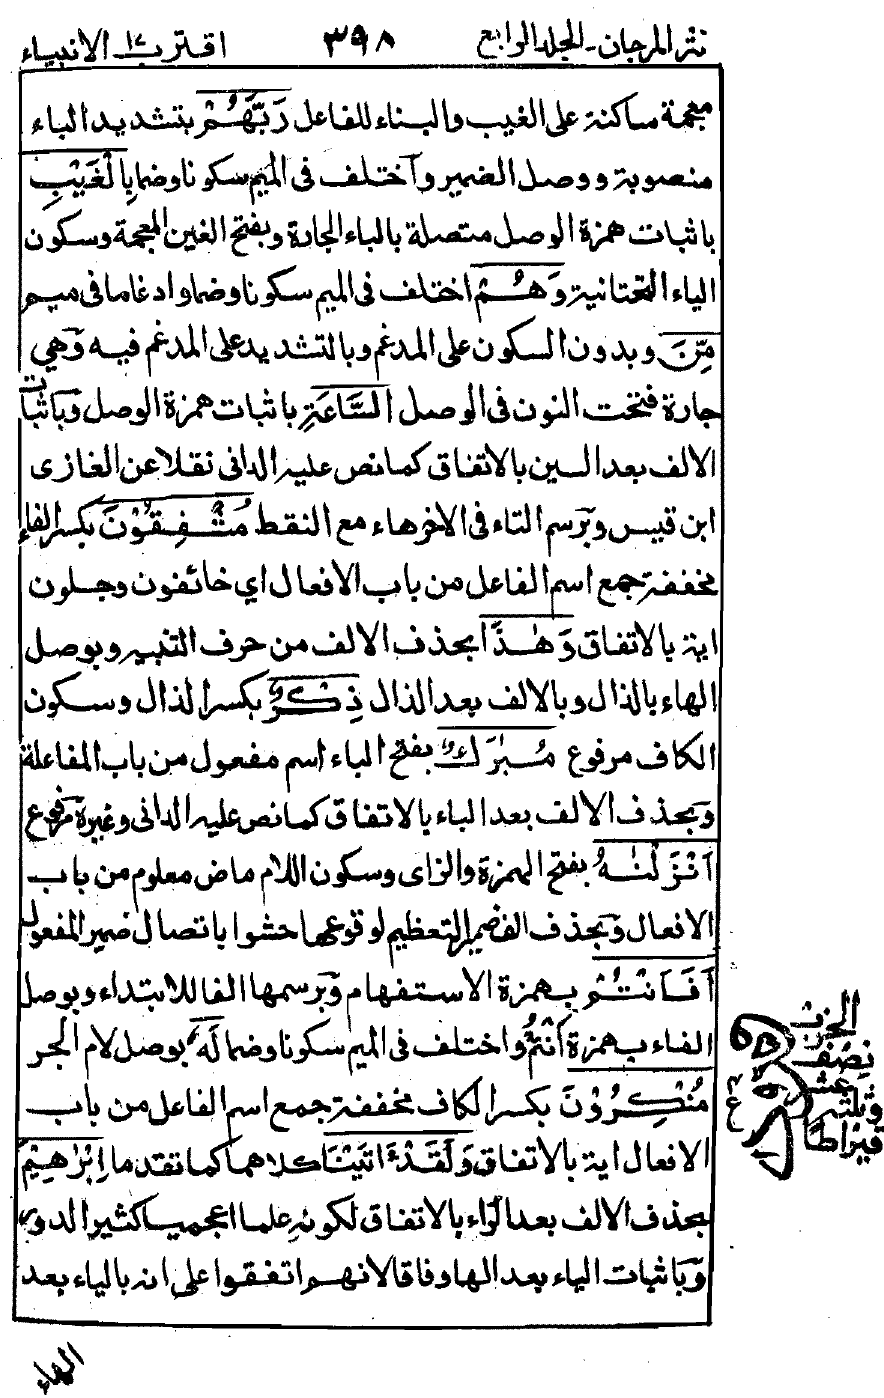 نثر المرجان - الجلد الرابع ٣٩٨ اقترب ١٧ الانبياء
معجمة ساكنة على الغيب والبناء للفاعل رَبَّهُمْ بتشديد الباء
منصوبة ووصل الضمير واختلف فى الميم سكونا وضما بِالْغَيْبِ
باثبات همزة الوصل متصلة بالباء الجارة وبفتح الغين المعجمة وسكون
الياء التحتانية وَهُمْ اختلف فى الميم سكونا وضما وادغاما فى ميم
مِّنَ وبدون السكون على المدغم وبالتشديد على المدغم فيه وهي
جارة فتحت النون فى الوصل السَّاعَةِ باثبات همزة الوصل وباثبات
الالف بعد السين بالاتفاق كما نص عليه الدانى نقلا عن الغازى
ابن قيس وبرسم التاء فى الاخر هاء مع النقط مُشْفِقُوْنَ بكسر الفاء
مخففة جمع اسم الفاعل من باب الافعال اي خائفون وجلون
اية بالاتفاق وَهٰذَا بحذف الالف من حرف التنبيه وبوصل
الهاء بالذال وبالالف بعد الذال ذِكْرٌ بكسر الذال وسكون
الكاف مرفوع مُبٰرَكٌ بفتح الباء اسم مفعول من باب المفاعلة
وبحذف الالف بعد الباء بالاتفاق كما نص عليه الدانى وغيره مرفوع
اَنْزَلْنٰهُ بفتح الهمزة والزاى وسكون اللام ماض معلوم من باب
الافعال وبحذف الف ضمير التعظيم لوقوعها حشوا باتصال ضمير المفعول
اَفَاَنْتُمْ بهمزة الاستفهام وبرسمها الفا للابتداء وبوصل
الفاء بهمزة أَنْتُمْ واختلف فى الميم سكونا وضما لَهٗ بوصل لام الجر
مُنْكِرُوْنَ بكسر الكاف مخففة جمع اسم الفاعل من باب
الافعال اية بالاتفاق وَلَقَدْ ءَاتَيْنَا كلاهما كما تقدما اِبْرٰهِيْمَ
بحذف الالف بعد الراء بالاتفاق لكونه علما اعجميا كثير الدور
وباثبات الياء بعد الها وفاقا لانهم اتفقوا على انه بالياء بعد
الهاء
الحزب
نصف
عشر
وثلثه
قيراط